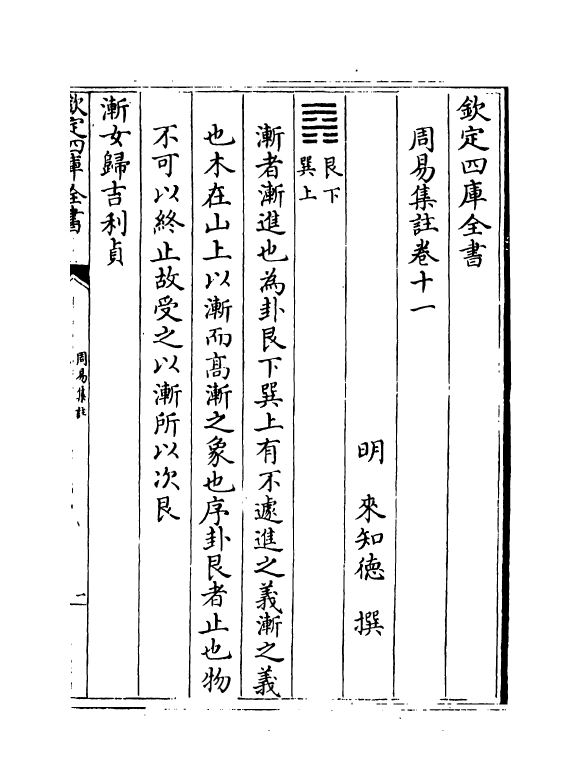 欽定四庫全書
周易集註卷十一
明 來知德 撰
䷴
艮下
巽上
漸者漸進也為卦艮下巽上有不遽進之義漸之義
也木在山上以漸而髙漸之象也序卦艮者止也物
不可以終止故受之以漸所以次艮
漸女歸吉利貞
欽定四庫全書
周易集註
二